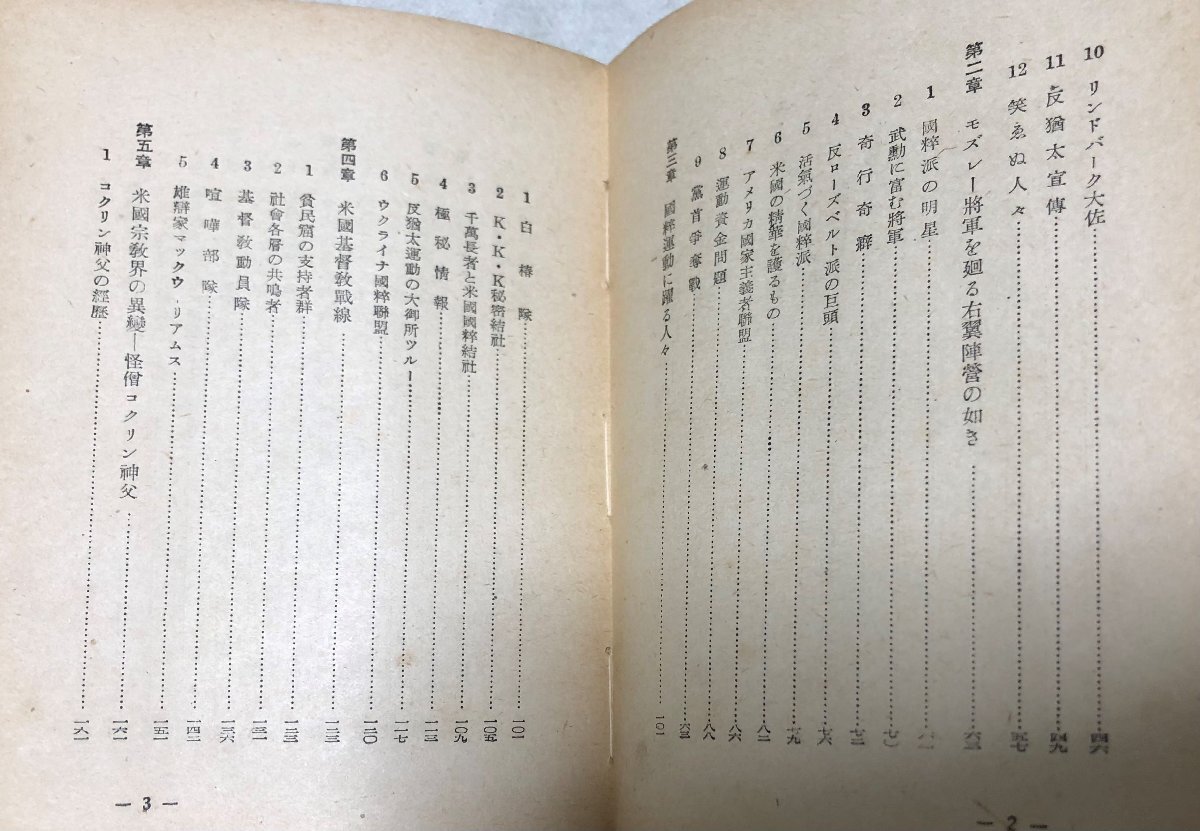 10 リンドバーク大佐 四六
11 反猶太宣傳 四九
12 笑ゑぬ人々 五七
第二章 モズレー將軍を廻る右翼陣營の如き 六三
1 國粹派の明星
2 武勳に富む將軍 七〇
3 奇行奇癖 七二
4 反ローズベルト派の巨頭 七六
5 活氣づく國粹派 七九
6 米國の精華を護るもの 八二
7 アメリカ國家主義者聯盟 八六
8 運動資金問題 八八
9 黨首爭奪戰
第三章 國粹運動に躍る人々 一〇一
— 2 —
1 白椿隊 一〇一
2 K・K・K秘密結社 一〇五
3 千萬長者と米國國粹結社 一〇九
4 極秘情報
5 反猶太運動の大御所ツルー 一一七
6 ウクライナ國粹聯盟 一二〇
第四章 米國基督教戰線 一二三
1 貧民窟の支持者群 一二三
2 社會各層の共鳴者 一三一
3 基督教動員隊
4 喧嘩部隊 一四二
5 雄辯家マックウ−リアムス 一五一
第五章 米國宗教界の異變—怪僧コクリン神父 一六一
1 コクリン神父の經歷 一六一
— 3 —